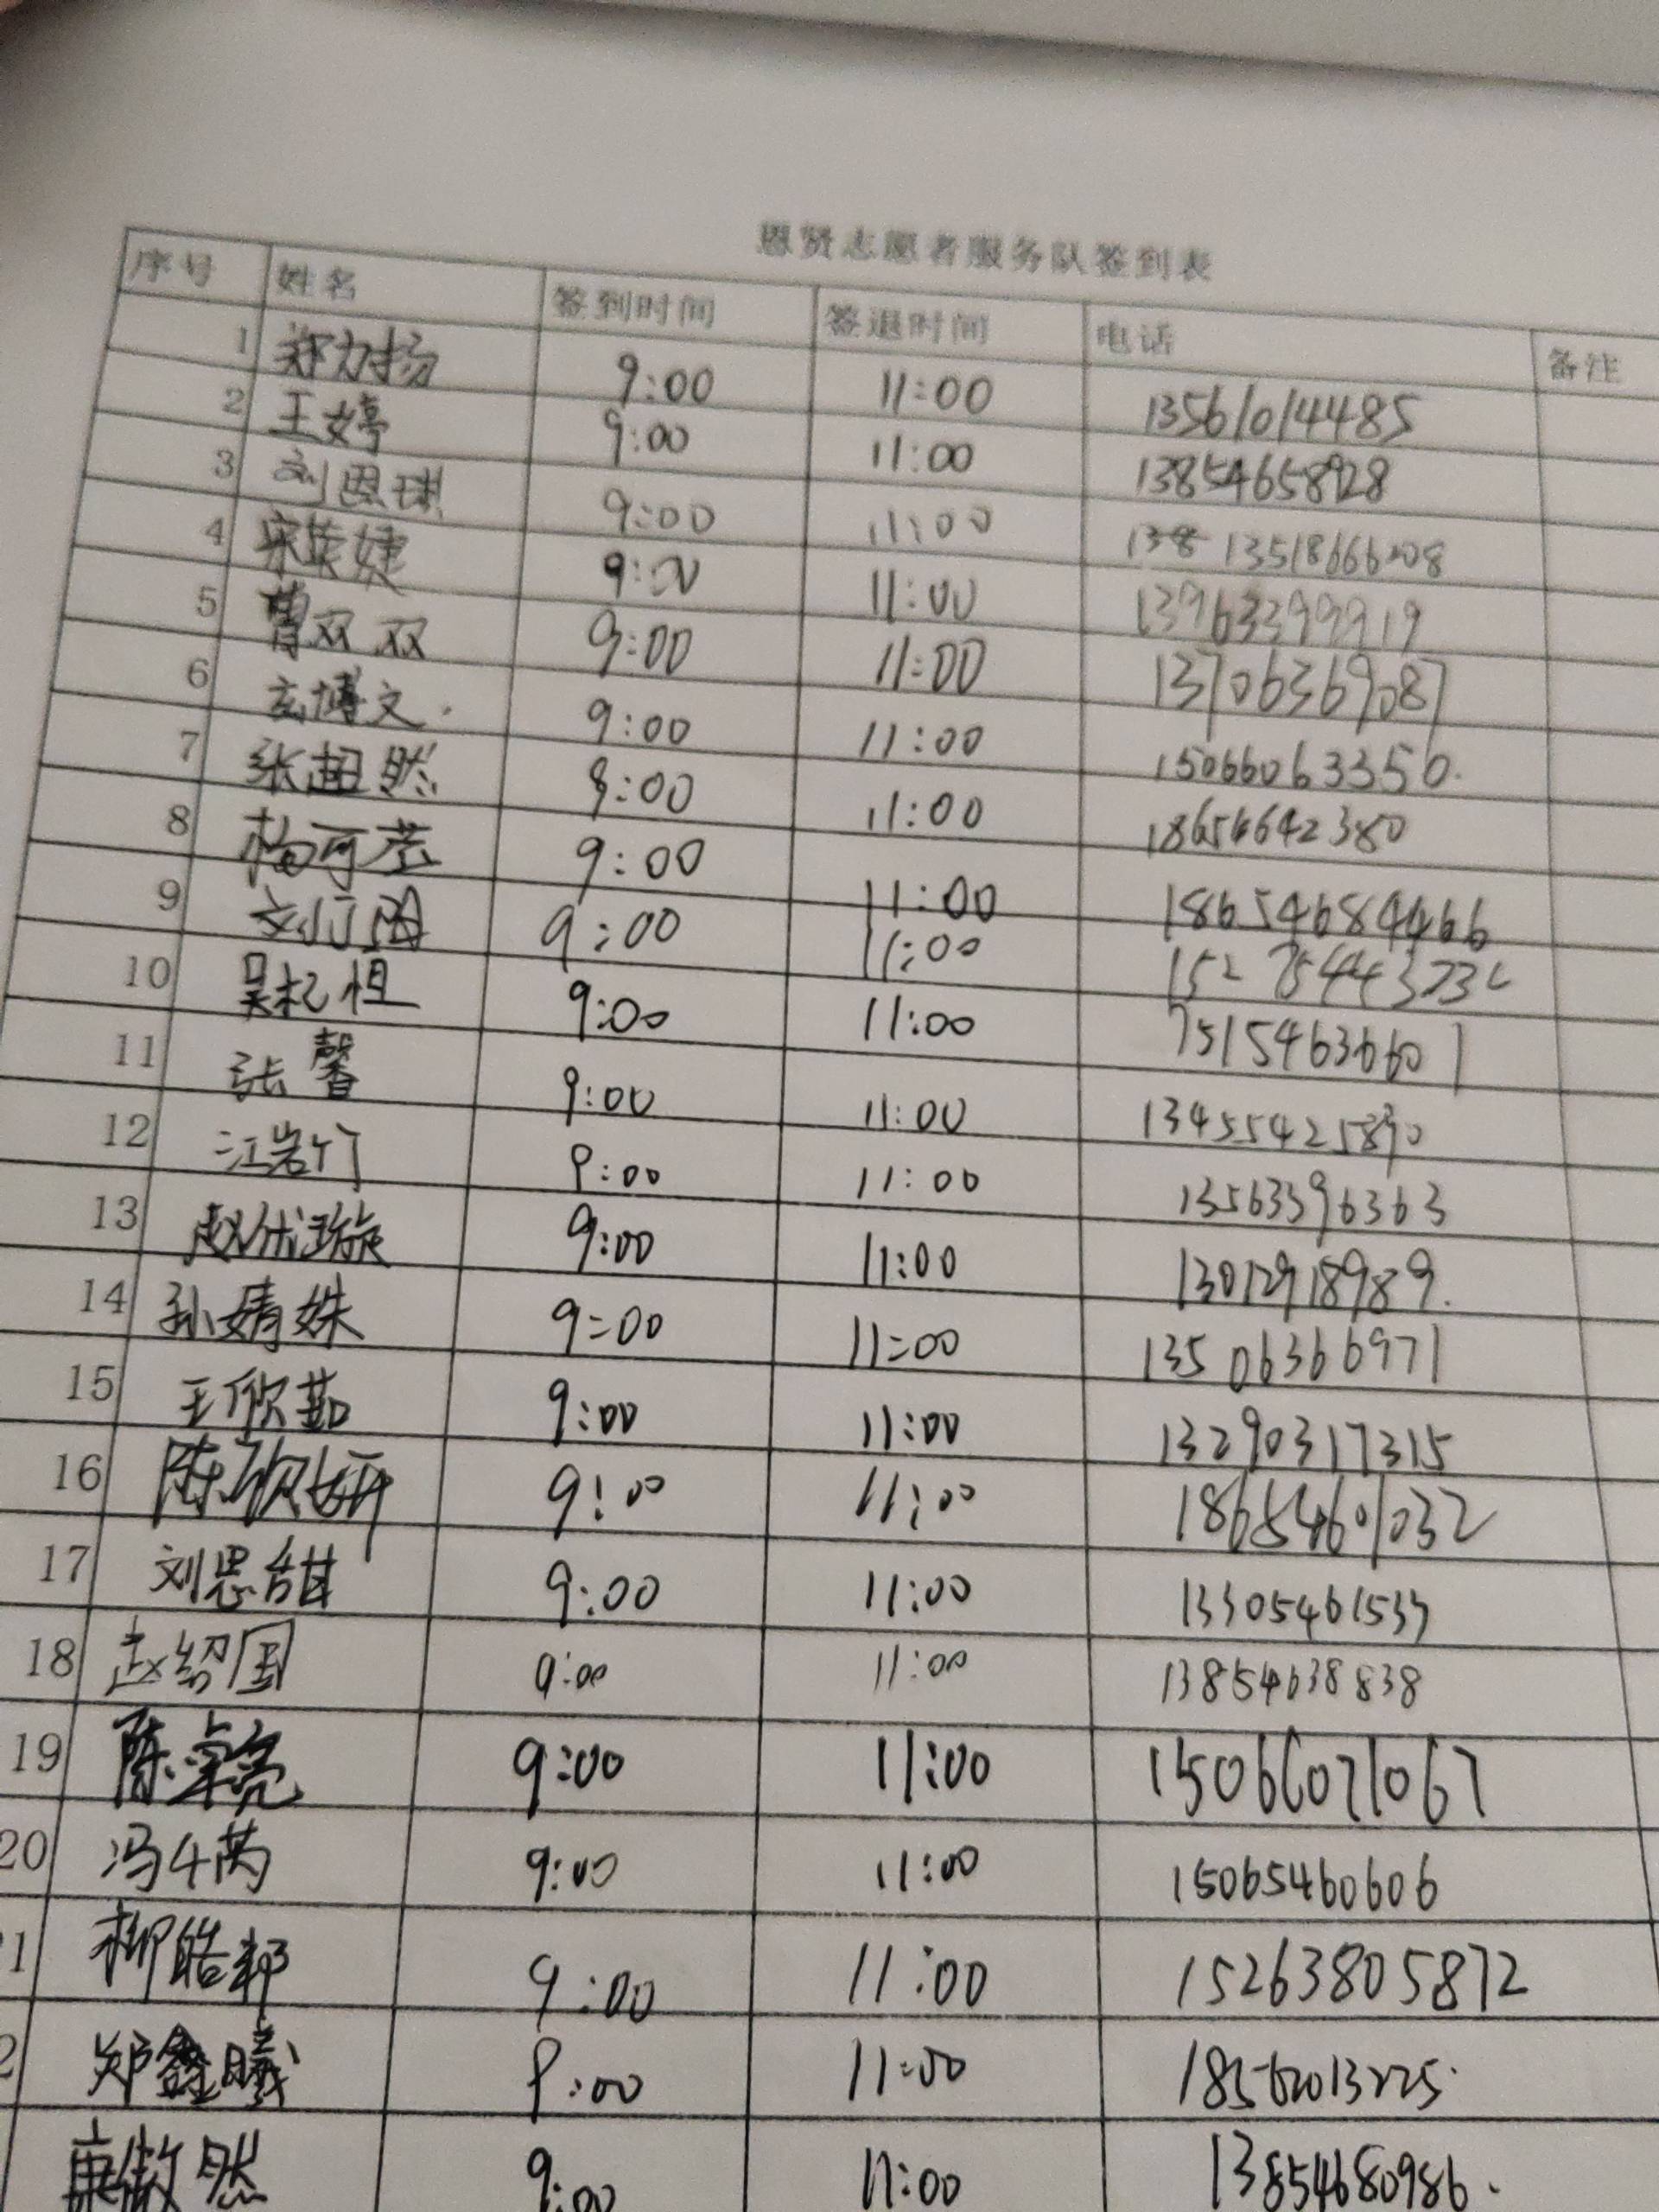 恩贤志愿者服务队签到表
序号 姓名 签到时间 签退时间 电话 备注
1 郑力扬 9:00 11:00 13561014485
2 王婷 9:00 11:00 13854658928
3 刘恩琪 9:00 11:00 138 13518666208
4 宋英婕 9:00 11:00 13963399919
5 曹双双 9:00 11:00 13706369087
6 玄博文. 9:00 11:00 15066063350.
7 张超然 9:00 11:00 18656642380
8 杨可 9:00 11:00 18654684466
9 9:00 11:00
10 吴杞恒 9:00 11:00
11 张馨 9:00 11:00
12 江岩竹 9:00 11:00 13563396363
13 赵优璇 9:00 11:00 13012918989.
14 孙婧姝 9:00 11:00 13506366971
15 王欣茹 9:00 11:00 13290317315
16 陈欣妍 9:00 11:00 18654601032
17 刘思甜 9:00 11:00 13305461533
18 赵绍国 9:00 11:00 13854638838
19 陈 亮 9:00 11:00 15066071067
20 冯 芮 9:00 11:00 15065460606
1 柳皓邦 9:00 11:00 15263805872
2 郑鑫曦 9:00 11:00 18562013225.
康傲然 9:00 11:00 13854680986.